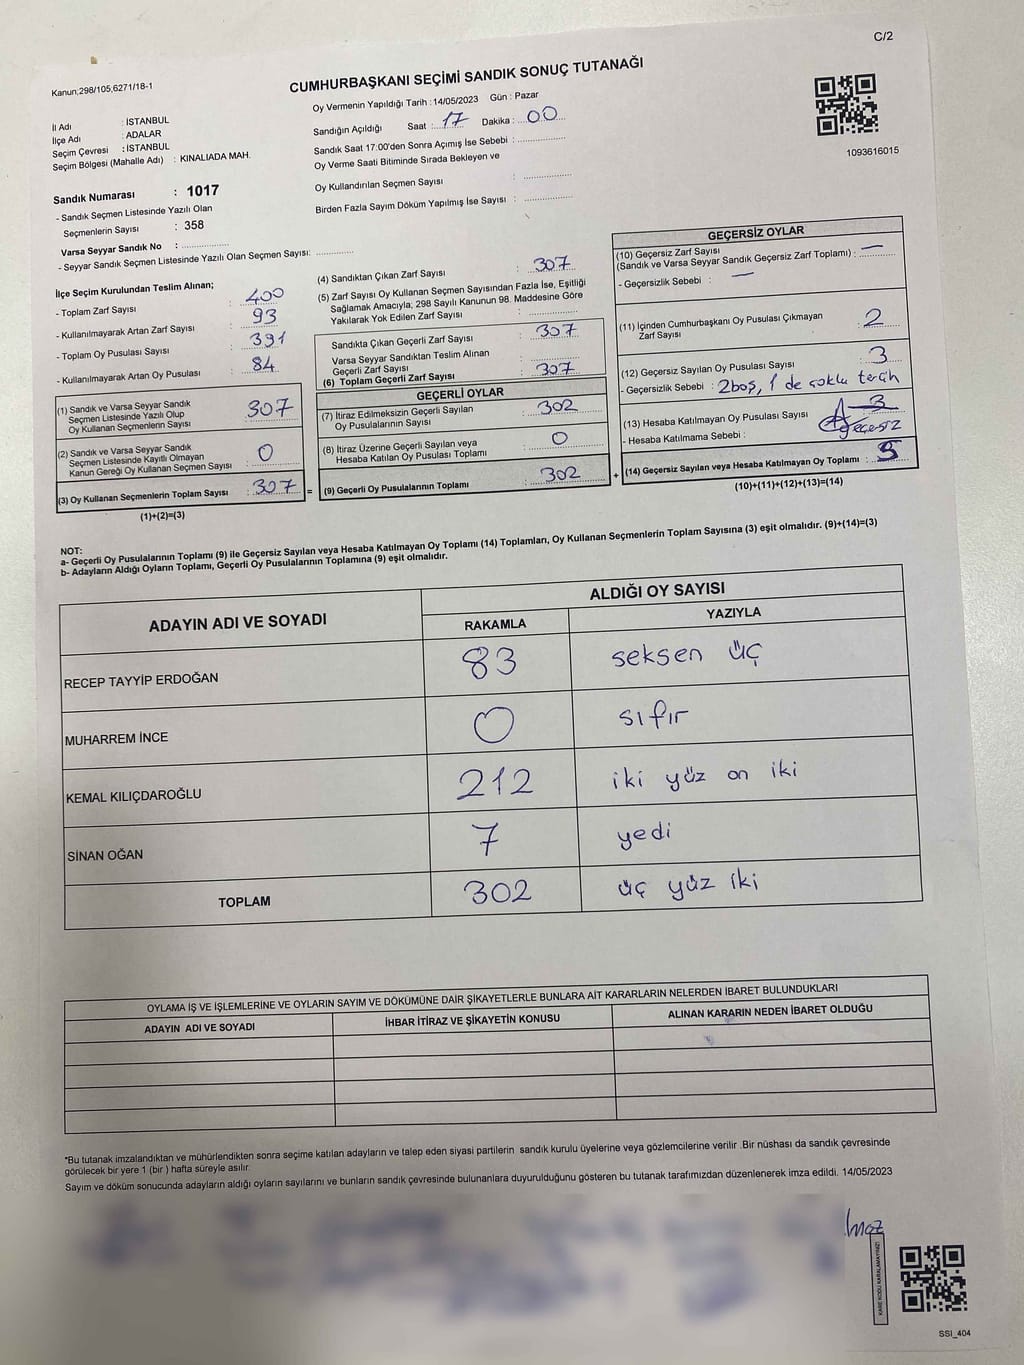 C/2
Kanun;298/105;6271/18-1
CUMHURBAŞKANI SEÇİMİ SANDIK SONUÇ TUTANAĞI
Oy Vermenin Yapıldığı Tarih : 14/05/2023 Gün : Pazar
Sandığın Açıldığı Saat : 17 Dakika : 00
Sandık Saat 17:00'den Sonra Açımış İse Sebebi :
Oy Verme Saati Bitiminde Sırada Bekleyen ve
Oy Kullandırılan Seçmen Sayısı :
Birden Fazla Sayım Döküm Yapılmış İse Sayısı :
1093616015
İl Adı : İSTANBUL
İlçe Adı : ADALAR
Seçim Çevresi : İSTANBUL
Seçim Bölgesi (Mahalle Adı) : KINALIADA MAH.
Sandık Numarası : 1017
- Sandık Seçmen Listesinde Yazılı Olan
Seçmenlerin Sayısı : 358
Varsa Seyyar Sandık No :
- Seyyar Sandık Seçmen Listesinde Yazılı Olan Seçmen Sayısı:
İlçe Seçim Kurulundan Teslim Alınan;
- Toplam Zarf Sayısı : 400
- Kullanılmayarak Artan Zarf Sayısı : 93
- Toplam Oy Pusulası Sayısı : 391
- Kullanılmayarak Artan Oy Pusulası : 84
(1) Sandık ve Varsa Seyyar Sandık
Seçmen Listesinde Yazılı Olup
Oy Kullanan Seçmenlerin Sayısı : 307
(2) Sandık ve Varsa Seyyar Sandık
Seçmen Listesinde Kayıtlı Olmayan
Kanun Gereği Oy Kullanan Seçmen Sayısı : 0
(3) Oy Kullanan Seçmenlerin Toplam Sayısı : 307 =
(1)+(2)=(3)
(4) Sandıktan Çıkan Zarf Sayısı : 307
(5) Zarf Sayısı Oy Kullanan Seçmen Sayısından Fazla İse, Eşitliği
Sağlamak Amacıyla; 298 Sayılı Kanunun 98. Maddesine Göre
Yakılarak Yok Edilen Zarf Sayısı :
Sandıkta Çıkan Geçerli Zarf Sayısı : 307
Varsa Seyyar Sandıktan Teslim Alınan
Geçerli Zarf Sayısı :
(6) Toplam Geçerli Zarf Sayısı : 307
GEÇERLİ OYLAR
(7) İtiraz Edilmeksizin Geçerli Sayılan
Oy Pusulalarının Sayısı : 302
(8) İtiraz Üzerine Geçerli Sayılan veya
Hesaba Katılan Oy Pusulası Toplamı : 0
(9) Geçerli Oy Pusulalarının Toplamı : 302 +
GEÇERSİZ OYLAR
(10) Geçersiz Zarf Sayısı
(Sandık ve Varsa Seyyar Sandık Geçersiz Zarf Toplamı) : —
- Geçersizlik Sebebi : —
(11) İçinden Cumhurbaşkanı Oy Pusulası Çıkmayan
Zarf Sayısı : 2
(12) Geçersiz Sayılan Oy Pusulası Sayısı : 3
- Geçersizlik Sebebi : 2boş, 1 de çoklu tercih
(13) Hesaba Katılmayan Oy Pusulası Sayısı : 3
- Hesaba Katılmama Sebebi : geçersiz
(14) Geçersiz Sayılan veya Hesaba Katılmayan Oy Toplamı : 5
(10)+(11)+(12)+(13)=(14)
NOT:
a- Geçerli Oy Pusulalarının Toplamı (9) ile Geçersiz Sayılan veya Hesaba Katılmayan Oy Toplamı (14) Toplamları, Oy Kullanan Seçmenlerin Toplam Sayısına (3) eşit olmalıdır. (9)+(14)=(3)
b- Adayların Aldığı Oyların Toplamı, Geçerli Oy Pusulalarının Toplamına (9) eşit olmalıdır.
ADAYIN ADI VE SOYADI ALDIĞI OY SAYISI
RAKAMLA YAZIYLA
RECEP TAYYİP ERDOĞAN 83 seksen üç
MUHARREM İNCE 0 sıfır
KEMAL KILIÇDAROĞLU 212 iki yüz on iki
SİNAN OĞAN 7 yedi
TOPLAM 302 üç yüz iki
OYLAMA İŞ VE İŞLEMLERİNE VE OYLARIN SAYIM VE DÖKÜMÜNE DAİR ŞİKAYETLERLE BUNLARA AİT KARARLARIN NELERDEN İBARET BULUNDUKLARI
ADAYIN ADI VE SOYADI İHBAR İTİRAZ VE ŞİKAYETİN KONUSU ALINAN KARARIN NEDEN İBARET OLDUĞU
*Bu tutanak imzalandıktan ve mühürlendikten sonra seçime katılan adayların ve talep eden siyasi partilerin sandık kurulu üyelerine veya gözlemcilerine verilir .Bir nüshası da sandık çevresinde
görülecek bir yere 1 (bir ) hafta süreyle asılır.
Sayım ve döküm sonucunda adayların aldığı oyların sayılarını ve bunların sandık çevresinde bulunanlara duyurulduğunu gösteren bu tutanak tarafımızdan düzenlenerek imza edildi. 14/05/2023
KARE KODU KARALAMAYINIZ!
SSI_404